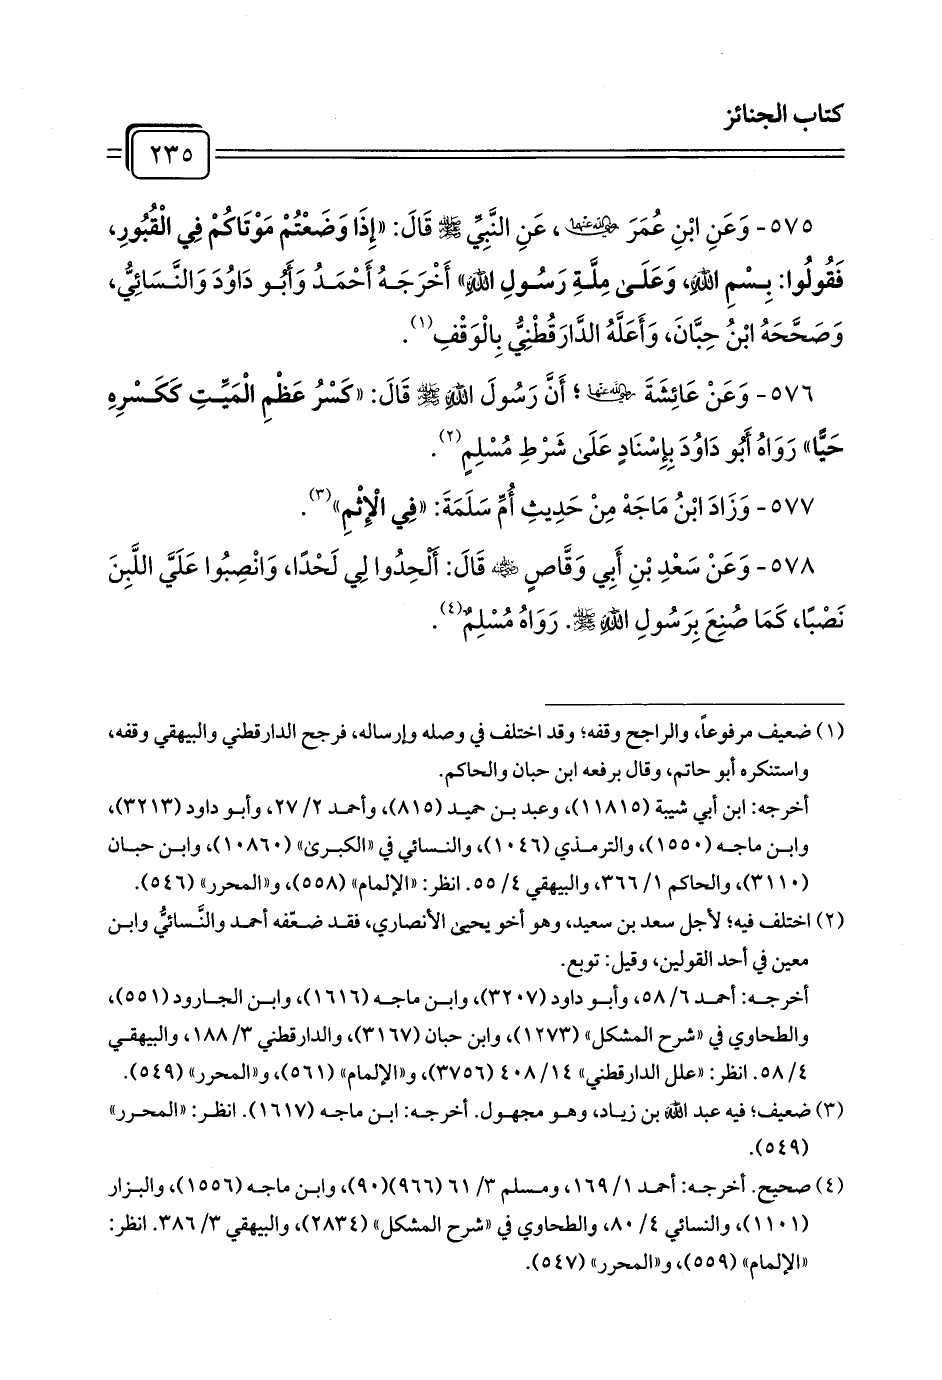 كتاب الجنائز
٢٣٥
٥٧٥- وَعَنِ ابْنِ عُمَرَ رضي الله عنهما، عَنِ النَّبِيِّ ﷺ قَالَ: «إِذَا وَضَعْتُمْ مَوْتَاكُمْ فِي الْقُبُورِ،
فَقُولُوا: بِسْمِ اللهِ، وَعَلَىٰ مِلَّةِ رَسُولِ اللهِ» أَخْرَجَهُ أَحْمَدُ وَأَبُو دَاوُدَ وَالنَّسَائِيُّ،
وَصَحَّحَهُ ابْنُ حِبَّانَ، وَأَعَلَّهُ الدَّارَقُطْنِيُّ بِالْوَقْفِ(١).
٥٧٦- وَعَنْ عَائِشَةَ رضي الله عنها؛ أَنَّ رَسُولَ اللهِ ﷺ قَالَ: «كَسْرُ عَظْمِ الْمَيِّتِ كَكَسْرِهِ
حَيًّا» رَوَاهُ أَبُو دَاوُدَ بِإِسْنَادٍ عَلَىٰ شَرْطِ مُسْلِمٍ(٢).
٥٧٧- وَزَادَ ابْنُ مَاجَهْ مِنْ حَدِيثِ أُمِّ سَلَمَةَ: «فِي الْإِثْمِ»(٣).
٥٧٨- وَعَنْ سَعْدِ بْنِ أَبِي وَقَّاصٍ رضي الله عنه قَالَ: أَلْحِدُوا لِي لَحْدًا، وَانْصِبُوا عَلَيَّ اللَّبِنَ
نَصْبًا، كَمَا صُنِعَ بِرَسُولِ اللهِ ﷺ. رَوَاهُ مُسْلِمٌ(٤).
(١) ضعيف مرفوعاً، والراجح وقفه؛ وقد اختلف في وصله وإرساله، فرجح الدارقطني والبيهقي وقفه،
واستنكره أبو حاتم، وقال برفعه ابن حبان والحاكم.
أخرجه: ابن أبي شيبة (١١٨١٥)، وعبد بن حميد (٨١٥)، وأحمد ٢/ ٢٧، وأبو داود (٣٢١٣)،
وابن ماجه (١٥٥٠)، والترمذي (١٠٤٦)، والنسائي في «الكبرىٰ» (١٠٨٦٠)، وابن حبان
(٣١١٠)، والحاكم ١/ ٣٦٦، والبيهقي ٤/ ٥٥. انظر: «الإلمام» (٥٥٨)، و«المحرر» (٥٤٦).
(٢) اختلف فيه؛ لأجل سعد بن سعيد، وهو أخو يحيىٰ الأنصاري، فقد ضعّفه أحمد والنَّسائيُّ وابن
معين في أحد القولين، وقيل: توبع.
أخرجه: أحمد ٦/ ٥٨، وأبو داود (٣٢٠٧)، وابن ماجه (١٦١٦)، وابن الجارود (٥٥١)،
والطحاوي في «شرح المشكل» (١٢٧٣)، وابن حبان (٣١٦٧)، والدارقطني ٣/ ١٨٨، والبيهقي
٤/ ٥٨. انظر: «علل الدارقطني» ١٤/ ٤٠٨ (٣٧٥٦)، و«الإلمام» (٥٦١)، و«المحرر» (٥٤٩).
(٣) ضعيف؛ فيه عبد الله بن زياد، وهو مجهول. أخرجه: ابن ماجه (١٦١٧). انظر: «المحرر»
(٥٤٩).
(٤) صحيح. أخرجه: أحمد ١/ ١٦٩، ومسلم ٣/ ٦١ (٩٦٦)(٩٠)، وابن ماجه (١٥٥٦)، والبزار
(١١٠١)، والنسائي ٤/ ٨٠، والطحاوي في «شرح المشكل» (٢٨٣٤)، والبيهقي ٣/ ٣٨٦. انظر:
«الإلمام» (٥٥٩)، و«المحرر» (٥٤٧).